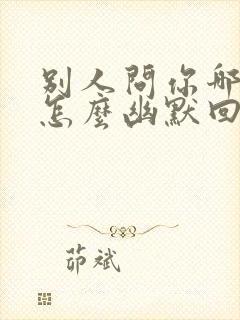 別人問你哪
怎麼幽默回
茆斌